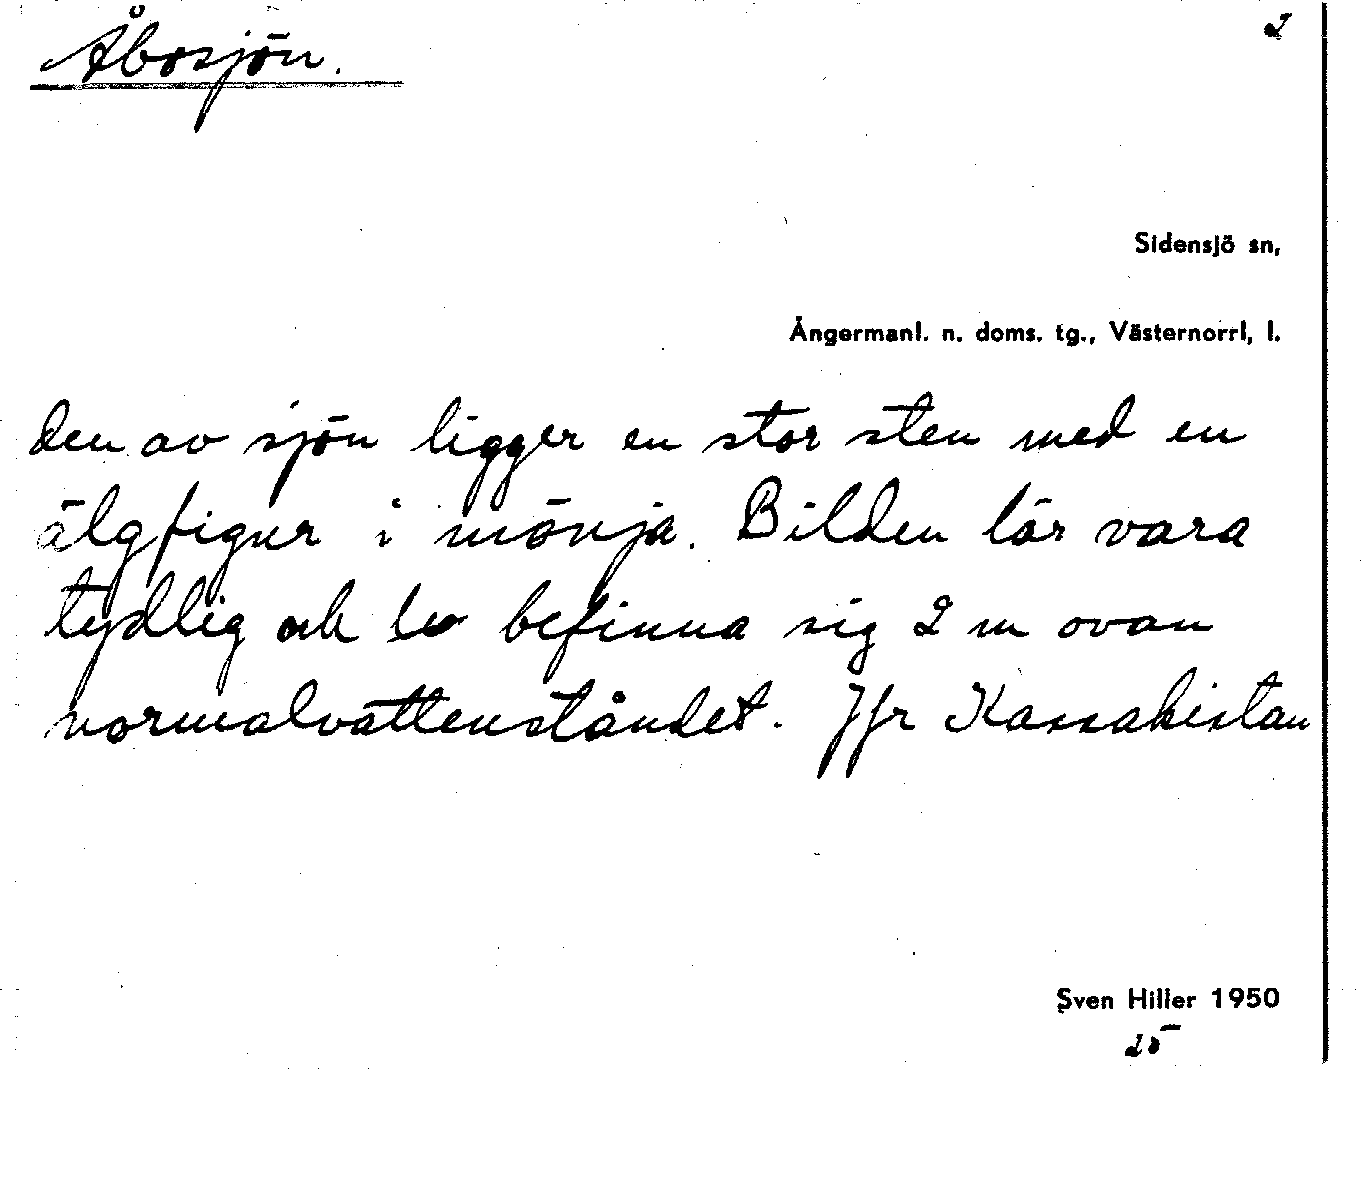 Åbosjön.
2
Sidensjö sn,
Ångermanl. n. doms. tg., Västernorrl, l.
den av sjön ligger en stor sten med en
älgfigur i mönja. Bilden lär vara
tydlig och befinna sig 2 m ovan
normalvattenståndet. Jfr Kassakistan
Sven Hiller 1950
25